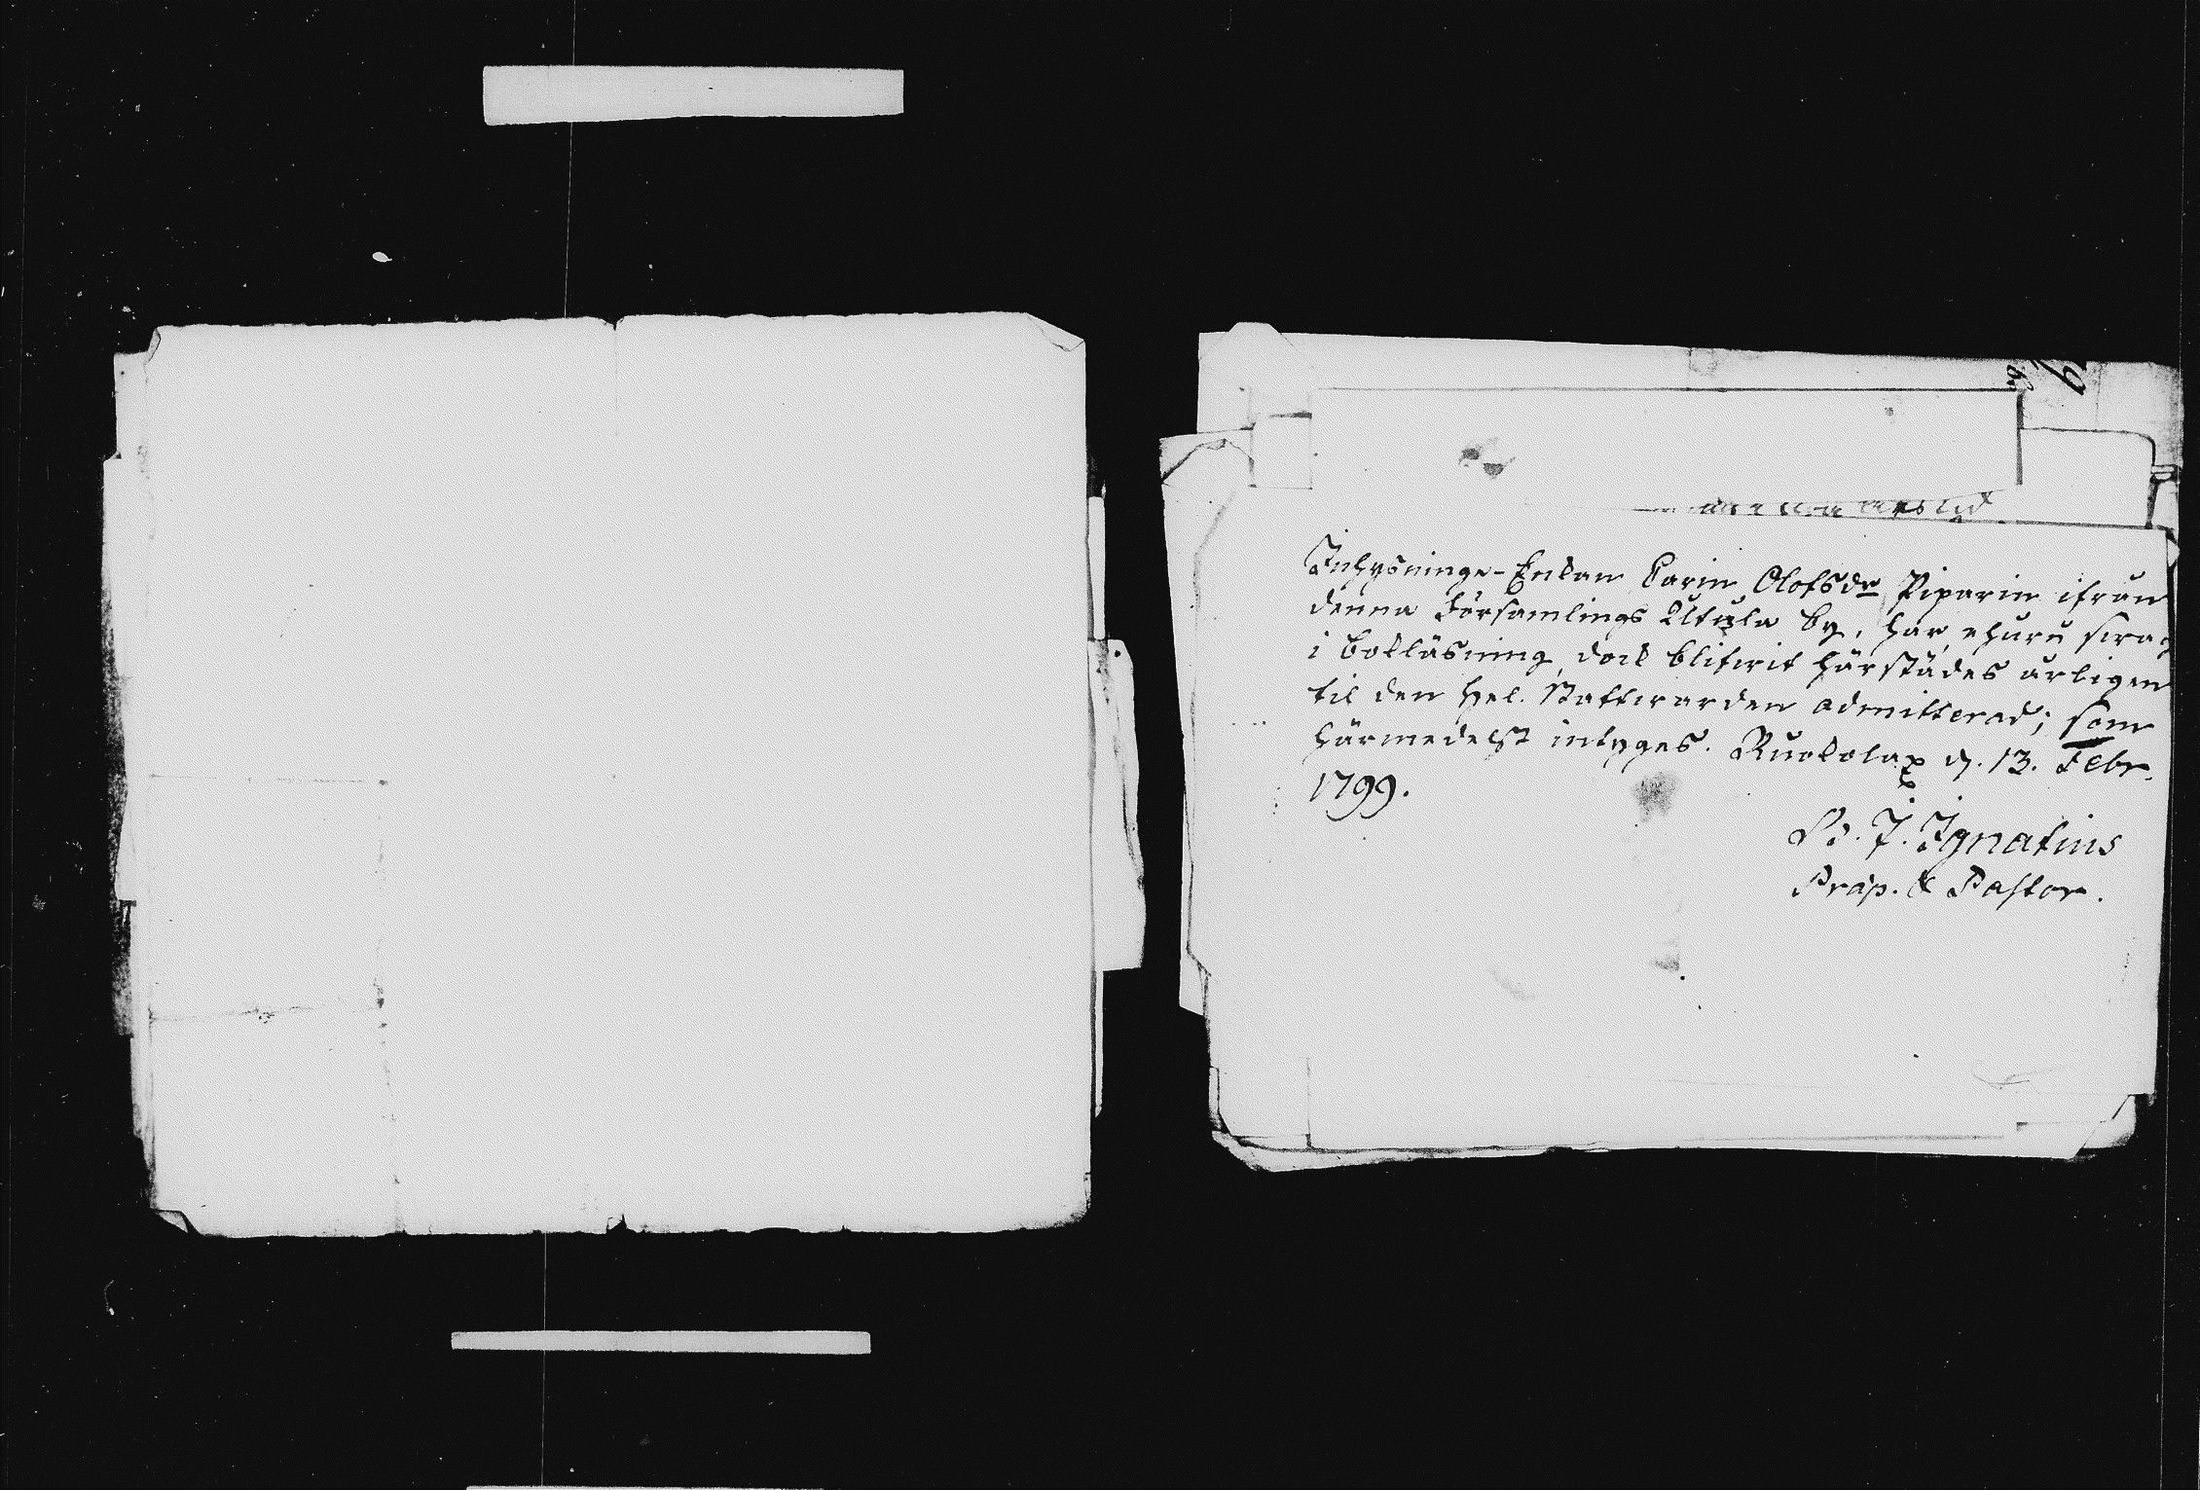 Inhysninge-Enkan Carin Olofsdr Piparin ifrån
denna Församlings Utula by, har, ehuru swag
i bokläsning, dock blifwit härstädes årligen
til den hel. Nattwarden admitterad; som
härmedelst intyges. Ruokolax d. 13. Febr.
1799.
J. Ignatius
Präp. & Pastor.